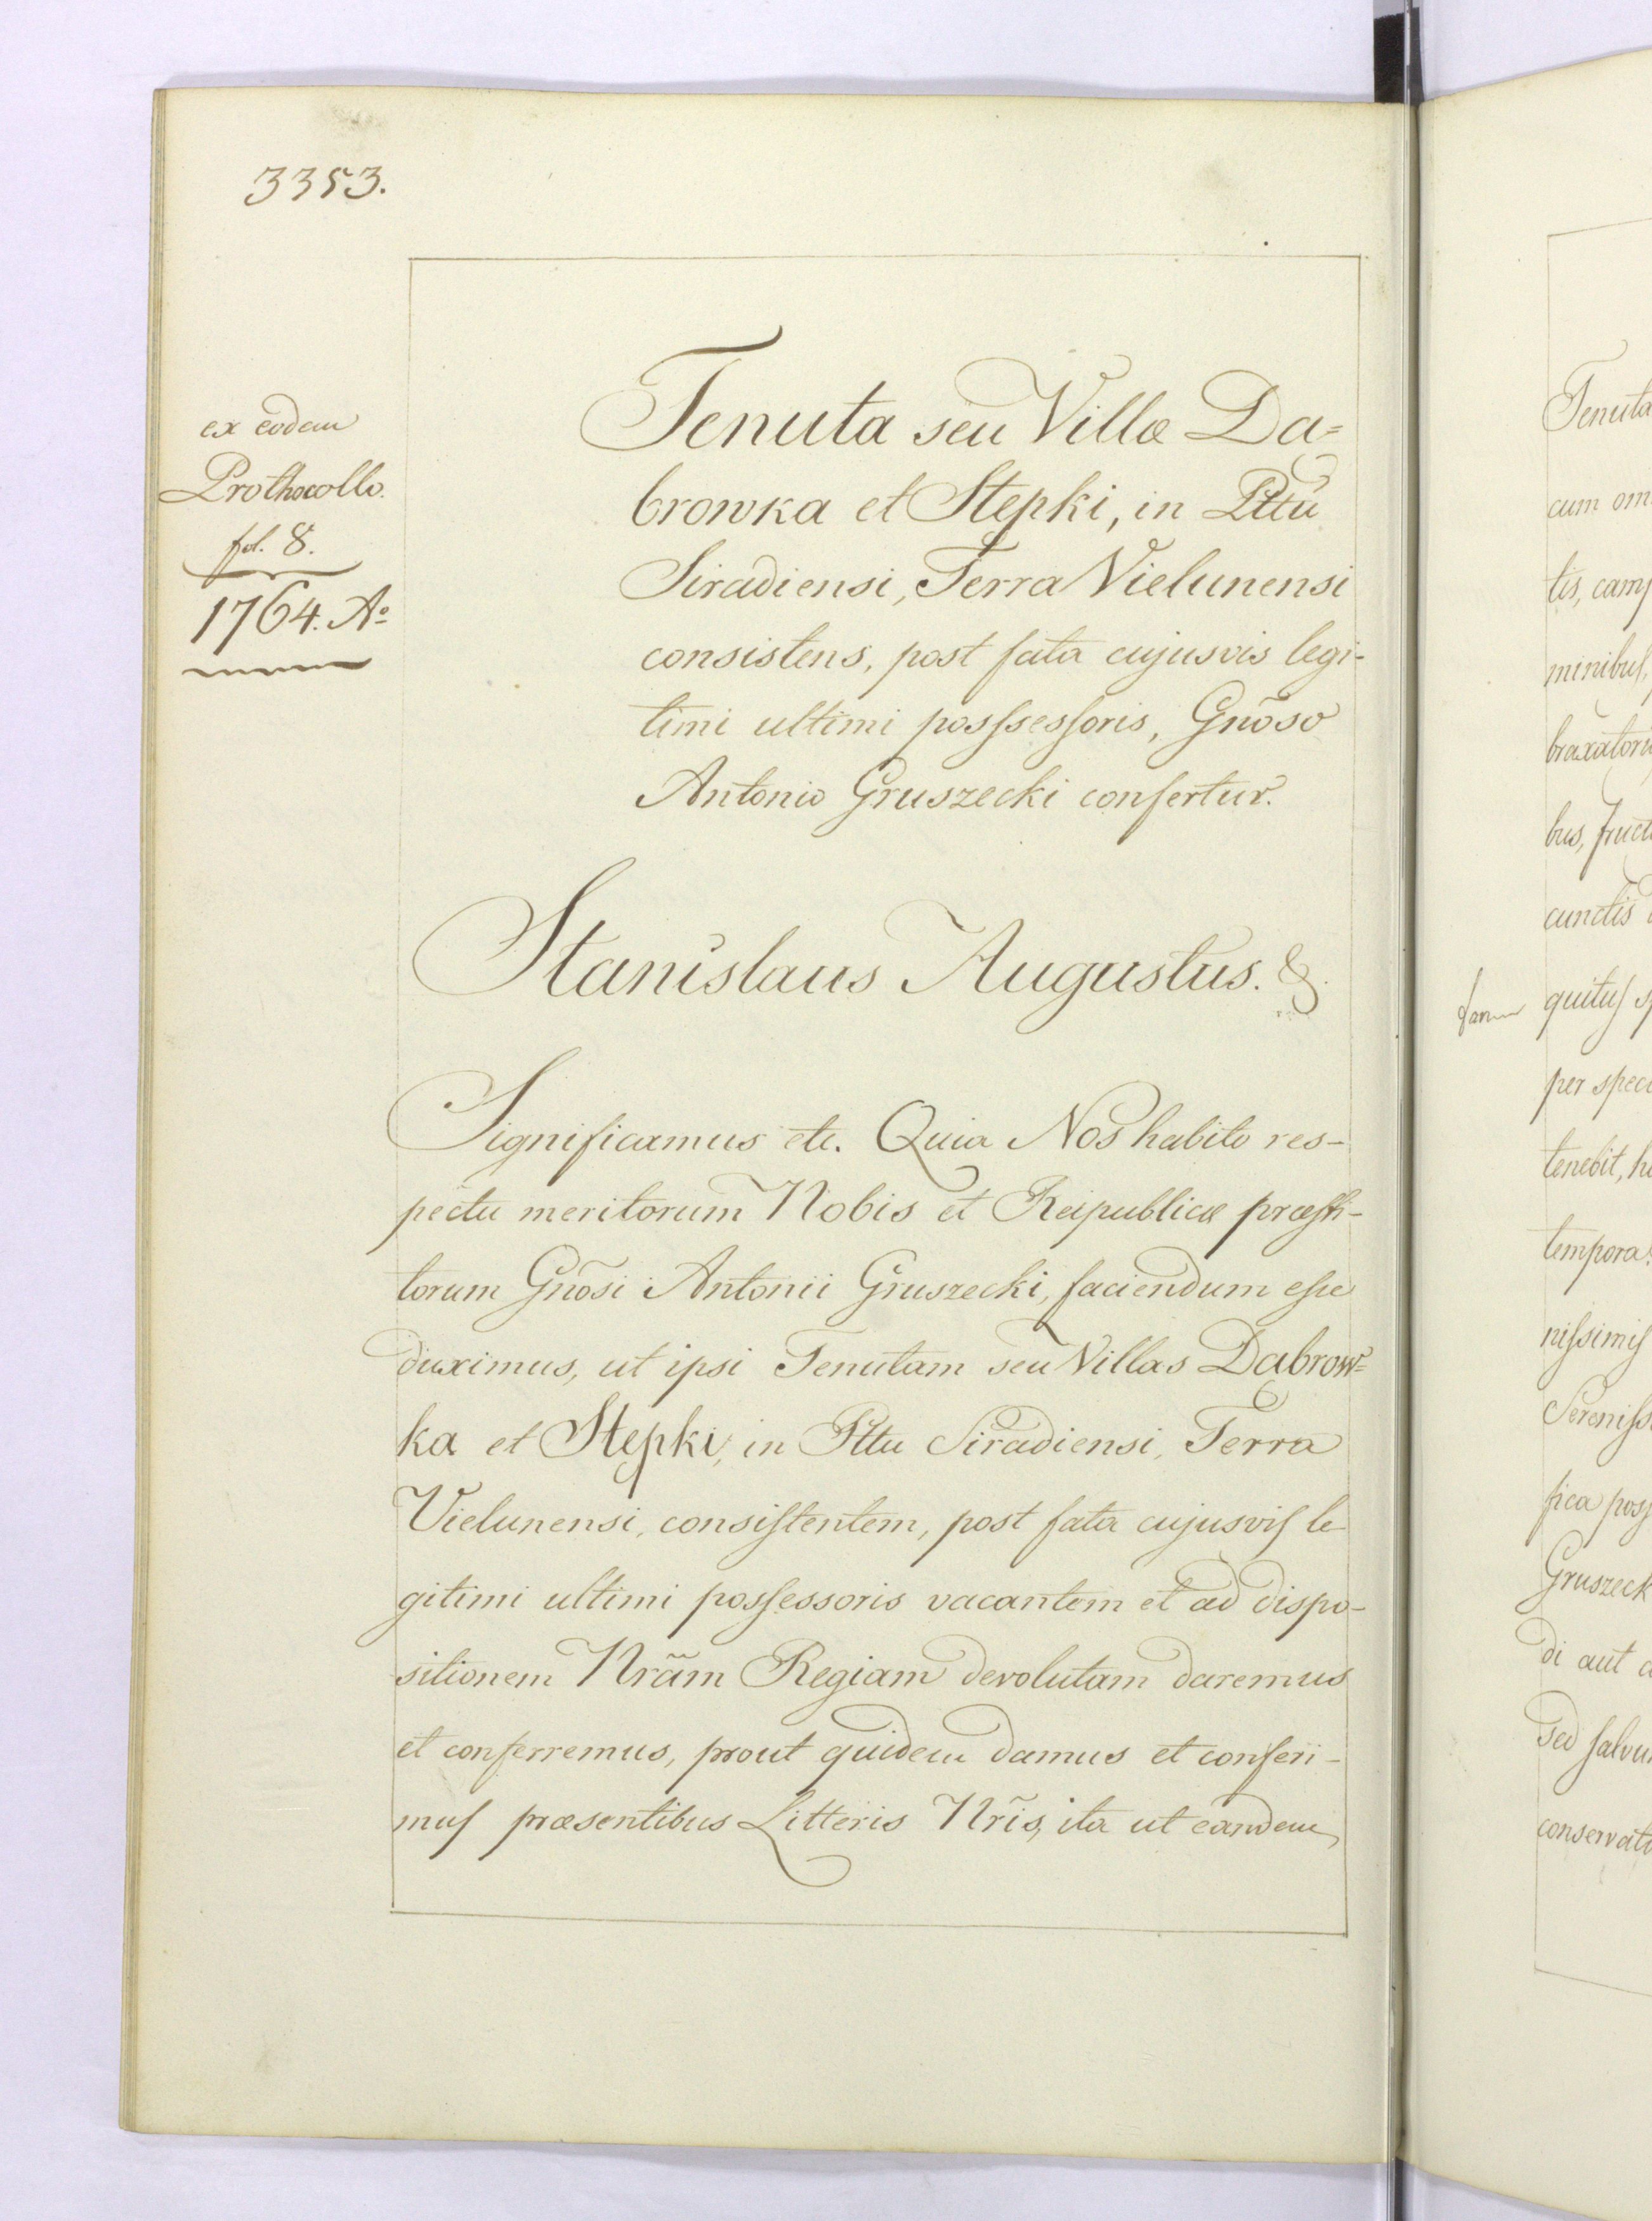 3353.
ex eodem
Prothocollo.
fol. 8.
1764. Aº
Tenuta seu Villæ Da=
browka et Stepki, in Pttu
Siradiensi, Terra Vielunensi
consistens, post fata cujusvis legi-
timi ultimi posſsesſoris, Gnõso
Antonio Gruszecki confertur.
Stanislaus Augustus. &.
Significamus etc. Quia Nos habito res-
pectu meritorum Nobis et Reipublicæ præſti-
torum Gnõsi Antonii Gruszecki, faciendum eſse
duximus, ut ipsi Tenutam seu Villas Dabrow=
ka et Stepki, in Pttu Siradiensi, Terra
Vielunensi, consiſtentem, post fata cujusviſ le
gitimi ultimi posſessoris vacantem et ad dispo-
sitionem Nrãm Regiam devolutam daremus
et conferremus, prout quidem damus et conferi-
muſ præsentibus Litteris Nrĩs, ita ut eandem,
Tenuta
cum om
tis, camp
minibuſ,
braxatori
bus, fruct
cunctis
quituſ s
per speci
tenebit, h
tempora.
niſsimiſ
Sereniſs
fica posſ
Gruszeck
di aut a
sed ſalvu
conservat